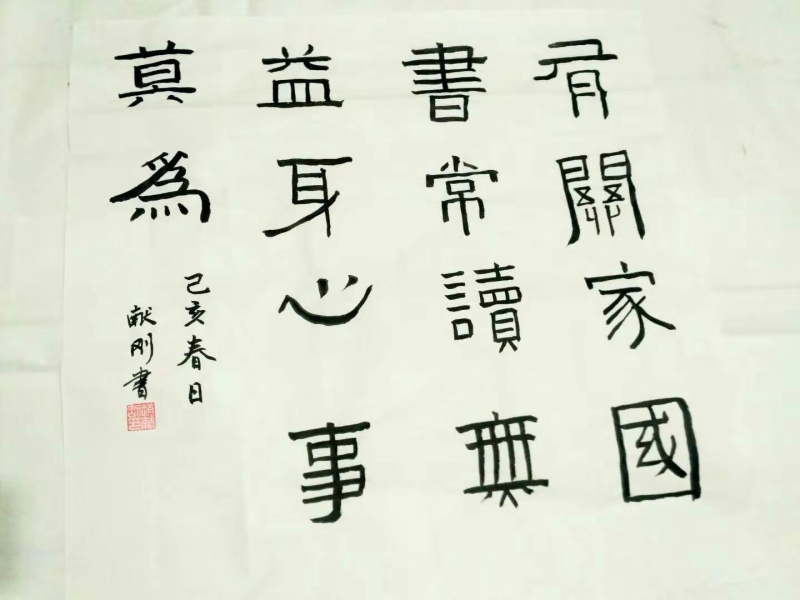 有關家國
書常讀無
益身心事
莫為
己亥春日
献刚書